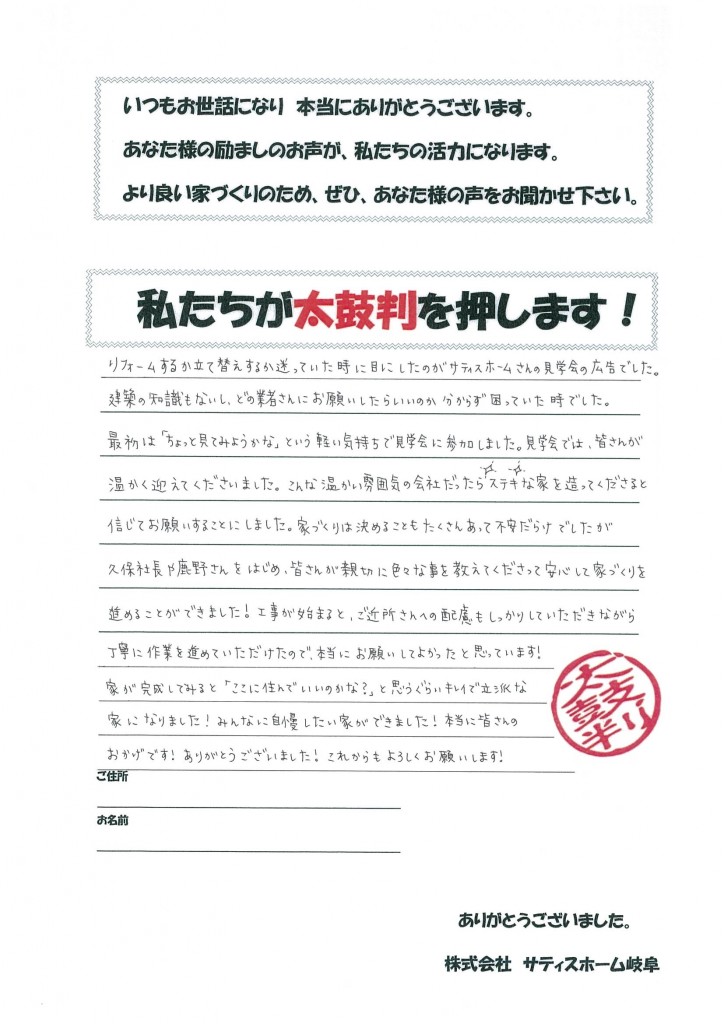 いつもお世話になり 本当にありがとうございます。
あなた様の励ましのお声が、私たちの活力になります。
より良い家づくりのため、ぜひ、あなた様の声をお聞かせ下さい。
私たちが太鼓判を押します！
リフォームするか立て替えするか迷っていた時に目にしたのがサティスホームさんの見学会の広告でした。
建築の知識もないし、どの業者さんにお願いしたらいいのか分からず困っていた時でした。
最初は「ちょっと見てみようかな」という軽い気持ちで見学会に参加しました。見学会では、皆さんが
温かく迎えてくださいました。こんな温かい雰囲気の会社だったらステキな家を造ってくださると
信じてお願いすることにしました。家づくりは決めることもたくさんあって不安だらけでしたが
久保社長や鹿野さんをはじめ、皆さんが親切に色々な事を教えてくださって安心して家づくりを
進めることができました！工事が始まると、ご近所さんへの配慮もしっかりしていただきながら
丁寧に作業を進めていただけたので、本当にお願いしてよかったと思っています！
家が完成してみると「ここに住んでいいのかな？」と思うぐらいキレイで立派な
家になりました！みんなに自慢したい家ができました！本当に皆さんの
おかげです！ありがとうございました！これからもよろしくお願いします！
太鼓判
ご住所
お名前
ありがとうございました。
株式会社 サティスホーム岐阜